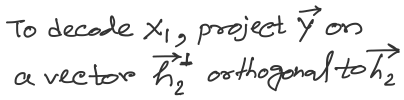 To decode x₁, project y⃗ on
a vector h⃗₂⊥ orthogonal to h⃗₂